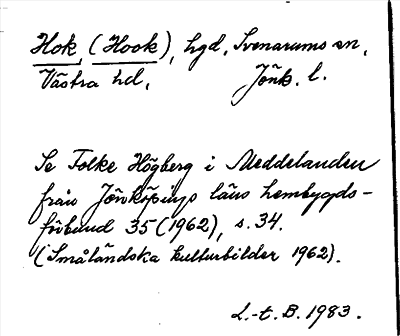 Hok, (Hook), hgd, Svenarums sn,
Västra hd, Jönk. l.
Se Folke Högberg i Meddelanden
från Jönköpings läns hembygds-
förbund 35 (1962), s. 34.
(Småländska kulturbilder 1962).
L.-t. B. 1983.